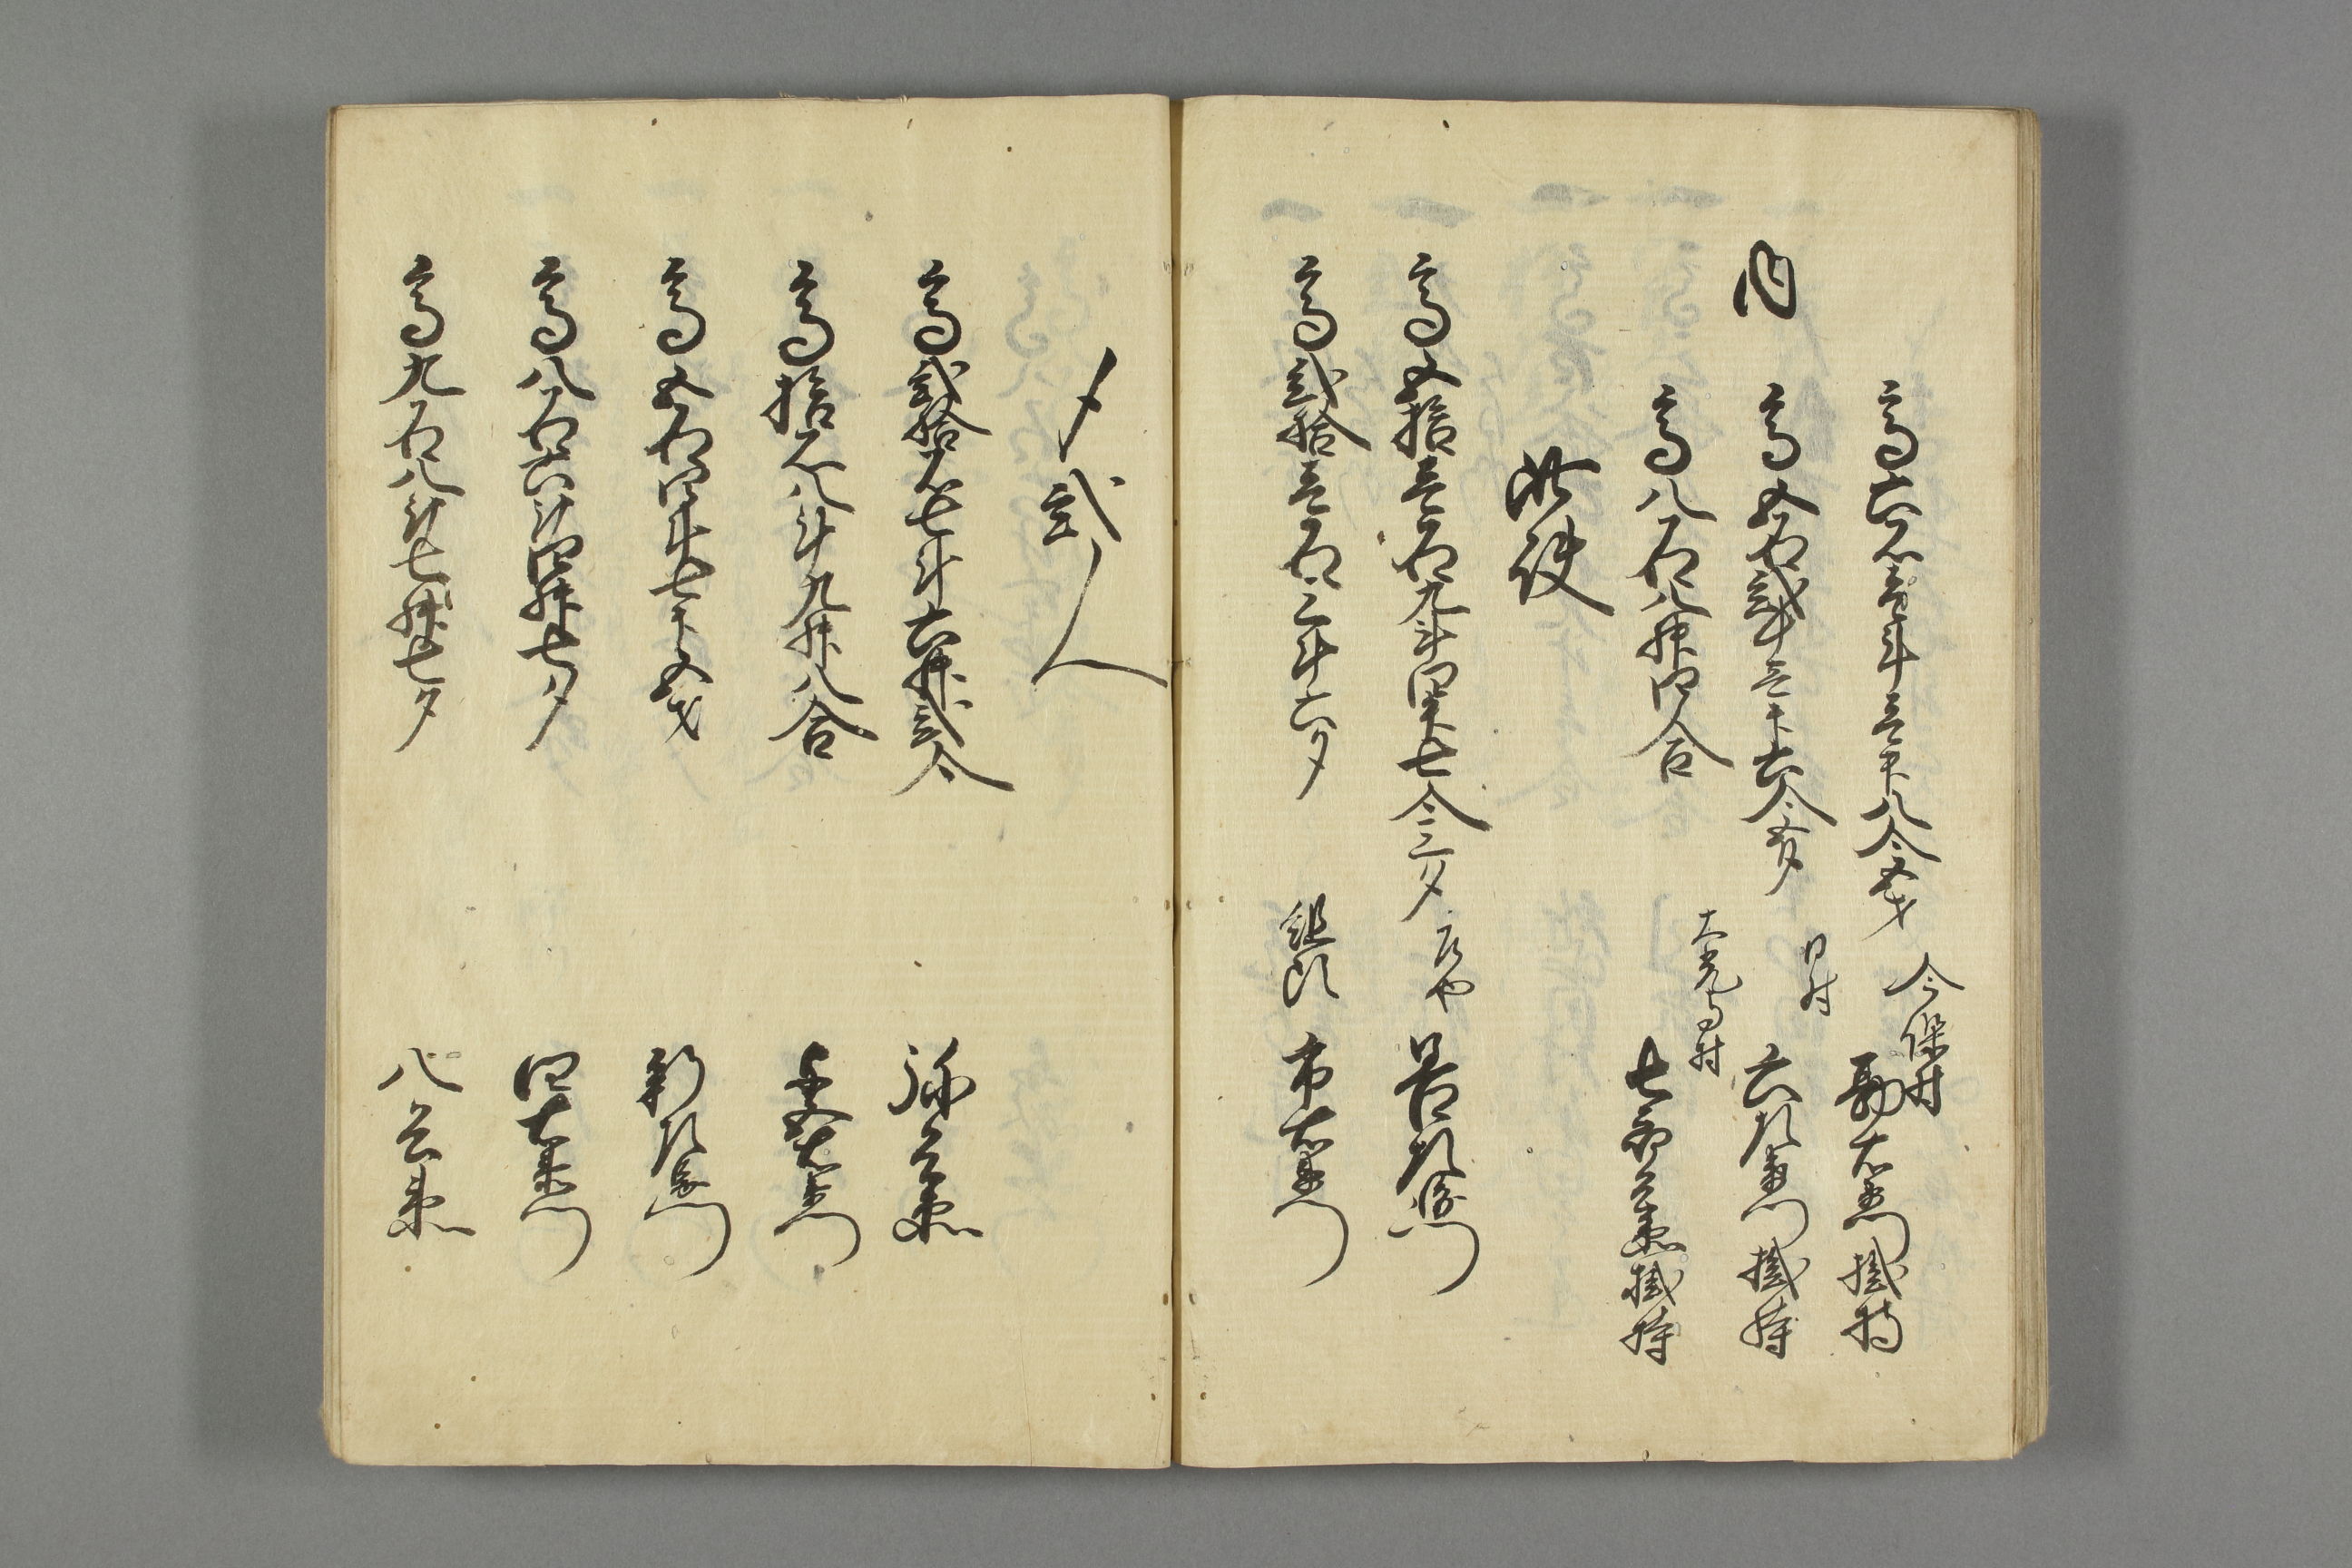 高六石壱斗三升八合五才 今保村 勘右衛門掛持
内 高五石弐斗三升六合五夕 同村 六左衛門掛持
高八石八升四合 大光寺村 七郎兵衛掛持
此訳
高五拾三石九斗四升七合三夕 庄や 善左衛門
高弐拾三石三斗六夕 組頭 市右衛門
〆弐人
高弐拾石七斗六升弐合 弥兵衛
高拾石八斗九升八合 右衛門
高五石四斗七升五才 新左衛門
高八石六斗四升七夕 四右衛門
高九石八斗七升七夕 八兵衛